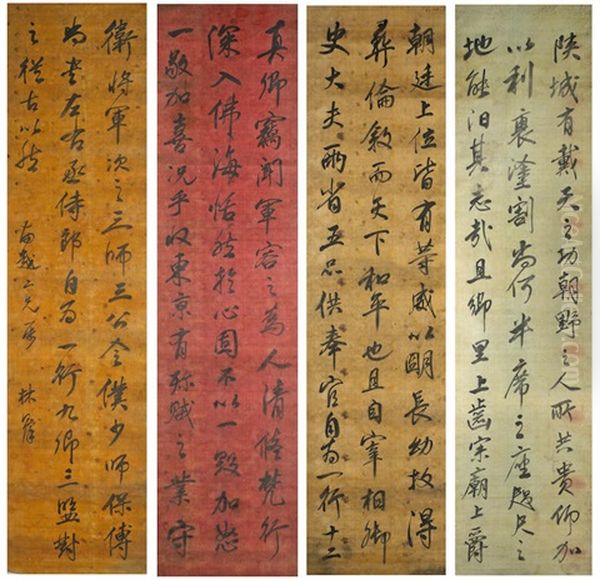 陝城有戴天之功朝野之人所共貴仰加
以利塗割為何半席之座咫尺之
地能汨其志哉且鄉里上齒宗廟上爵
朝廷上位皆有等威以明長幼故得
彝倫敘而天下和平也且自宰相御
史大夫兩省五品供奉官自為一行十二
真卿竊聞軍容之為人清修梵行
深入佛海恬然於心固不以一毀加怒
一敬加喜況乎收東京有殄賊之業守
衛將軍次之三師三公令僕少師保傅
尚書左右丞侍郎自為一行九卿三監對
之從古以然
二兄屬 林